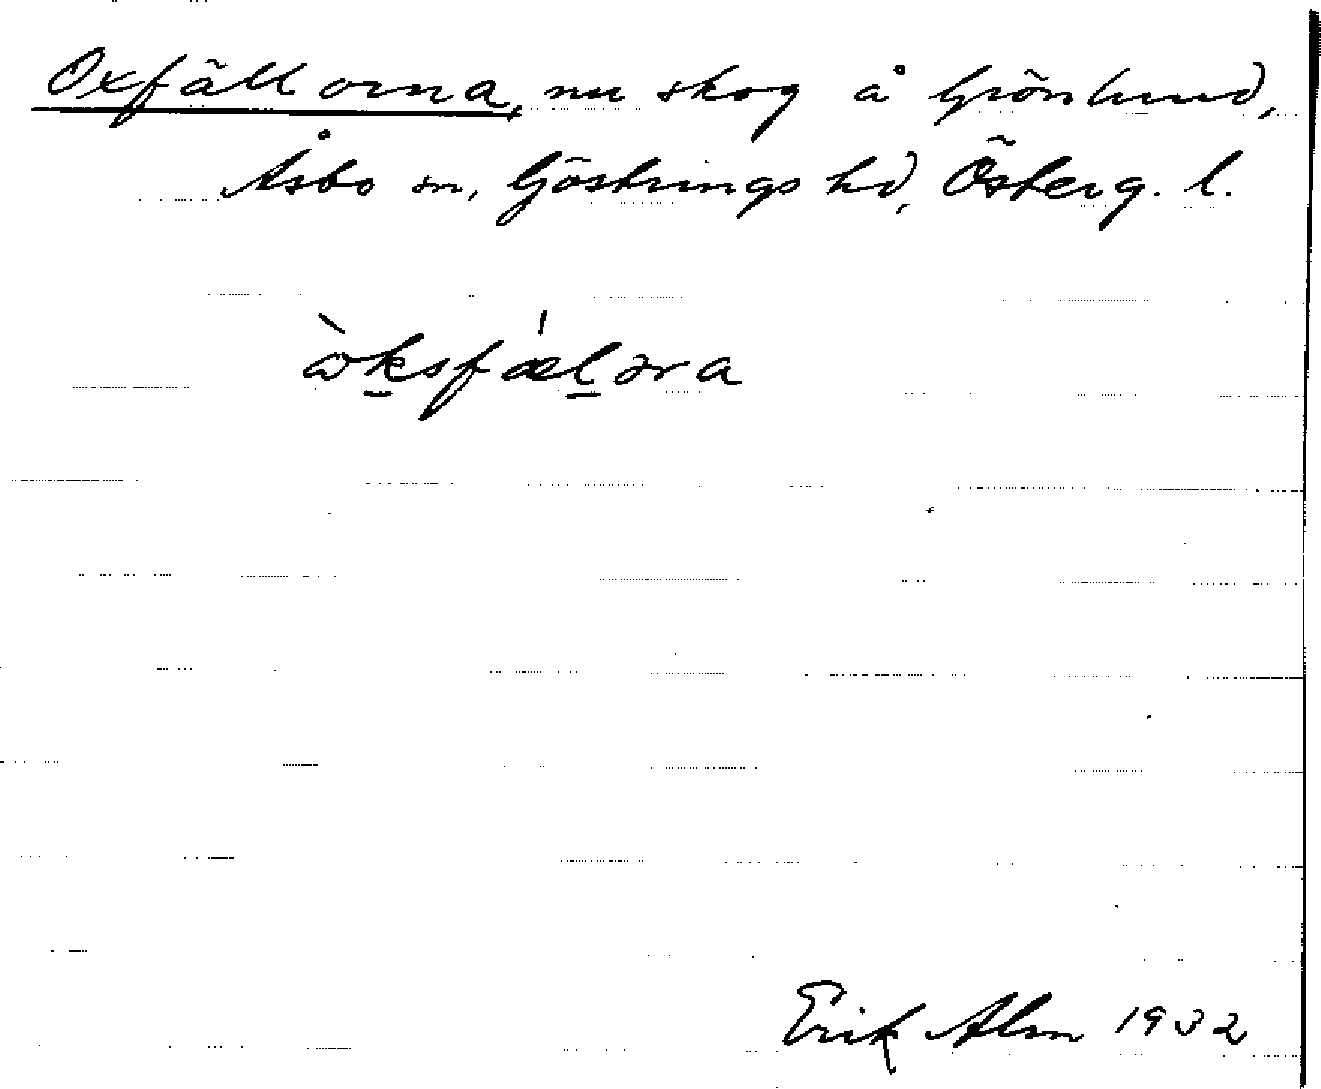 Oxfällorna, nu skog å Grönlund,
Åsbo sn, Göstrings hd, Österg. l.
ò̀ksfǽlɔra
Erik Alm 1932